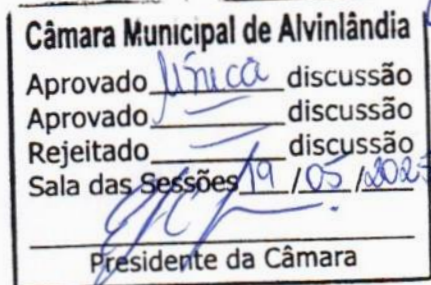 Câmara Municipal de Alvinlândia
Aprovado Única discussão
Aprovado discussão
Rejeitado discussão
Sala das Sessões 19 / 05 /
Presidente da Câmara